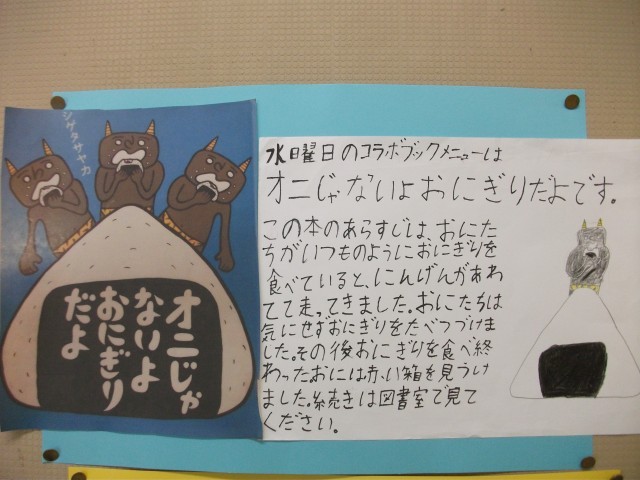 シゲタサヤカ
オニじゃ
ないよ
おにぎり
だよ
水曜日のコラボブックメニューは
オニじゃないよおにぎりだよです。
この本のあらすじは、おにた
ちがいつものようにおにぎりを
食べていると、にんげんがあわ
てて走ってきました。おにたちは
気にせずおにぎりをたべつづけま
した。その後おにぎりを食べ終
わったおには赤い箱を見つけ
ました。続きは図書室で見て
ください。